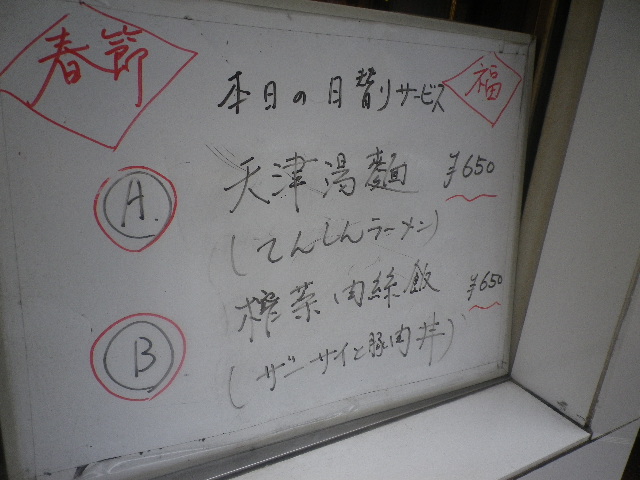 春節
本日の日替りサービス
福
A.
天津湯麺 ¥650
(てんしんラーメン)
B
榨菜肉絲飯 ¥650
(ザーサイと豚肉丼)